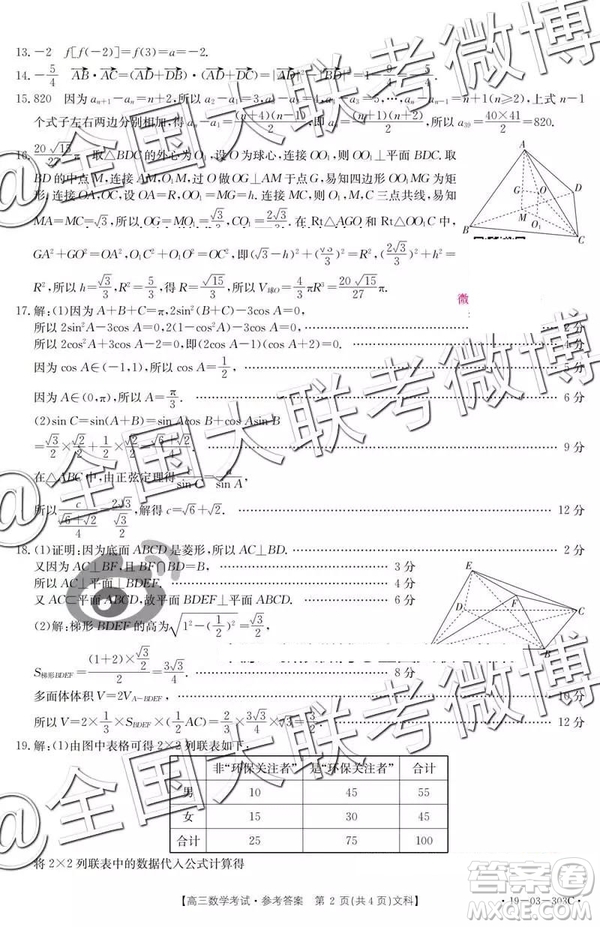 13. −2　f[f(−2)]=f(3)=a=−2.
14. −5/4　AB·AC=(AD+DB)·(AD+DC)=
15. 820　因为 aₙ₊₁−aₙ=n+2, 所以 a₂−a₁=3, …, aₙ−aₙ₋₁=n+1(n≥2), 上式 n−1
个式子左右两边分别相加, 得 aₙ−a₁=(n+4)(n−1)/2, 即 aₙ=(n+1)(n+2)/2, 所以 a₃₉=40×41/2=820.
16. 20√15/27 π　取△BDC 的外心为 O₁, 设 O 为球心, 连接 OO₁, 则 OO₁⊥平面 BDC. 取
BD 的中点 M, 连接 AM, 过 O 做 OG⊥AM 于点 G, 易知四边形 OO₁MG 为矩
形, 连接 OA, OC, 设 OA=R, OO₁=MG=h. 连接 MC, 则 O₁, M, C 三点共线, 易知
MA=MC=√3, 所以 OG=MO₁=√3/3, CO₁=2√3/3. 在 Rt△AGO 和 Rt△OO₁C 中,
GA²+GO²=OA², O₁C²+O₁O²=OC², 即(√3−h)²+(√3/3)²=R², (2√3/3)²+h²=R², 所
以 h=√3/3, R²=5/3, 得 R=√15/3, 所以 V球O=4/3 πR³=20√15/27 π.
微
17. 解:(1)因为 A+B+C=π, 2sin²(B+C)−3cos A=0,
所以 2sin²A−3cos A=0, 2(1−cos²A)−3cos A=0, 2 分
所以 2cos²A+3cos A−2=0, (2cos A−1)(cos A+2)=0. 4 分
因为 cos A∈(−1,1), 所以 cos A=1/2, 5 分
因为 A∈(0,π), 所以 A=π/3. 6 分
(2)sin C=sin(A+B)=sin Acos B+cos Asin B
=√3/2×√2/2+1/2×√2/2=(√6+√2)/4. 9 分
在△ABC 中, 由正弦定理得 c/sin C=a/sin A,
所以 c/((√6+√2)/4)=2√3/(√3/2), 解得 c=√6+√2. 12 分
18. (1)证明:因为底面 ABCD 是菱形, 所以 AC⊥BD. 2 分
又因为 AC⊥BF, 且 BF∩BD=B, 3 分
所以 AC⊥平面 BDEF. 4 分
又 AC⊂平面 ABCD, 故平面 BDEF⊥平面 ABCD. 6 分
(2)解:梯形 BDEF 的高为 √(1²−(1/2)²)=√3/2,
S梯形BDEF=(1+2)×√3/2/2=3√3/4. 8 分
多面体体积 V=2V_A−BDEF, 10 分
所以 V=2×1/3×S_BDEF×(1/2 AC)=2/3×3√3/4×√3/2=3/4. 12 分
19. 解:(1)由图中表格可得 2×2 列联表如下:
非“环保关注者”　是“环保关注者”　合计
男　10　45　55
女　15　30　45
合计　25　75　100
将 2×2 列联表中的数据代入公式计算得
【高三数学考试·参考答案　第 2 页(共 4 页)文科】
·19-03-303C·
@全国大联考微博
@全国大联考微博
@全国大联考微博